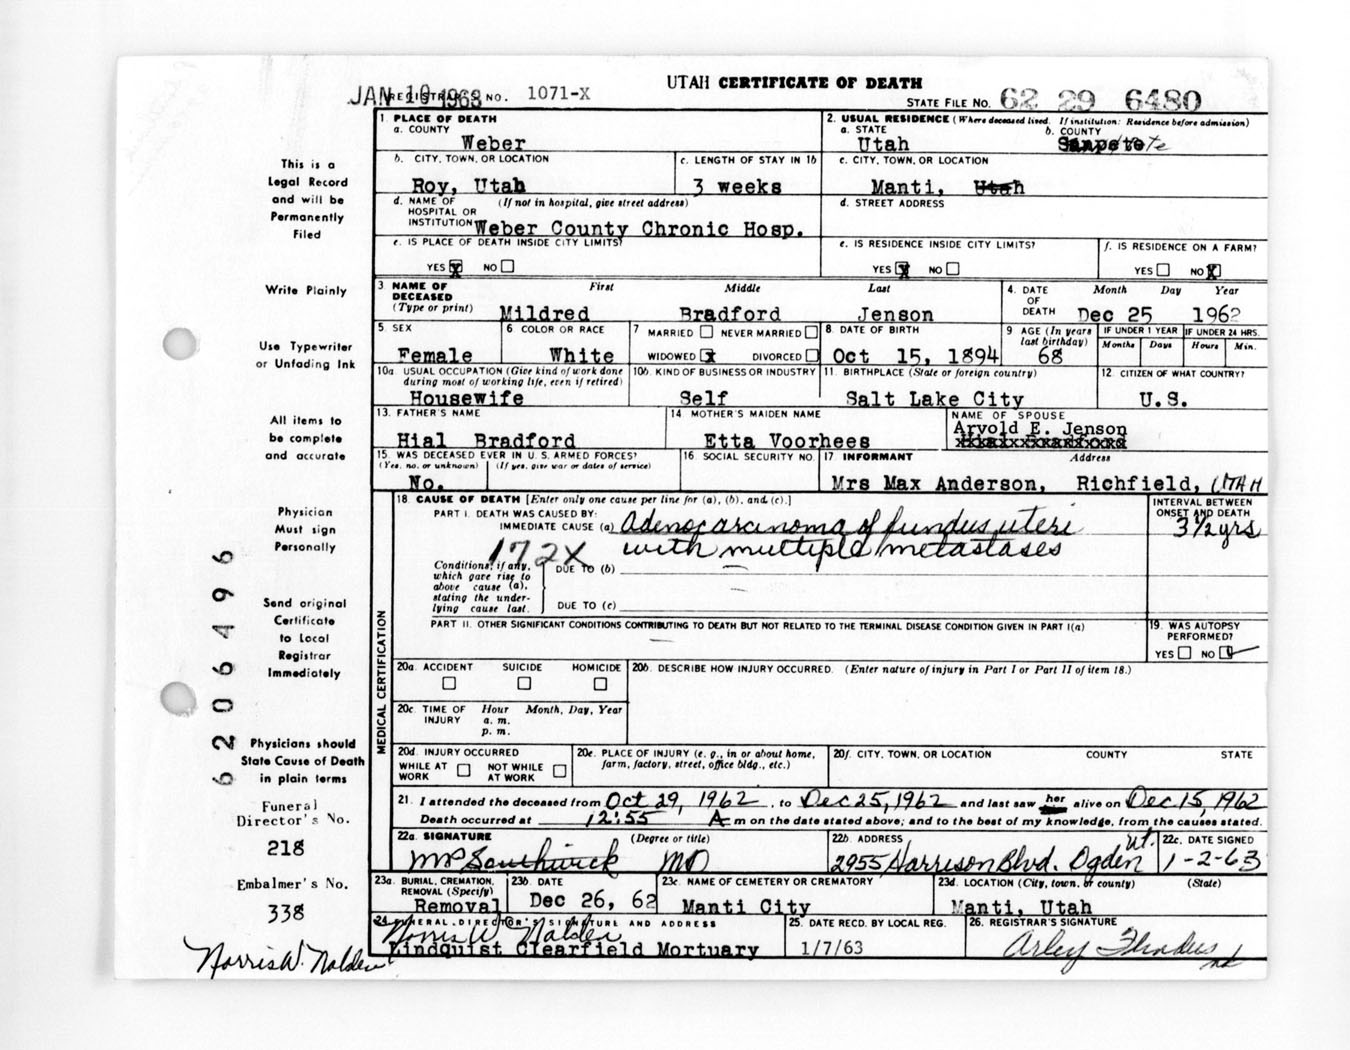 UTAH CERTIFICATE OF DEATH
JAN 10 1963
REGISTRAR'S NO. 1071-X
STATE FILE NO. 62 29 6480
This is a
Legal Record
and will be
Permanently
Filed
Write Plainly
Use Typewriter
or Unfading Ink
All items to
be complete
and accurate
Physician
Must sign
Personally
Send original
Certificate
to Local
Registrar
Immediately
Physicians should
State Cause of Death
in plain terms
Funeral
Director's No.
218
Embalmer's No.
338
Norris W. Nalder
62 206496
1. PLACE OF DEATH
a. COUNTY
Weber
2. USUAL RESIDENCE (Where deceased lived. If institution: Residence before admission)
a. STATE
Utah
b. COUNTY
Sanpete
b. CITY, TOWN, OR LOCATION
Roy, Utah
c. LENGTH OF STAY IN 1b
3 weeks
c. CITY, TOWN, OR LOCATION
Manti, Utah
d. NAME OF HOSPITAL OR INSTITUTION (If not in hospital, give street address)
Weber County Chronic Hosp.
d. STREET ADDRESS
e. IS PLACE OF DEATH INSIDE CITY LIMITS?
YES X NO
e. IS RESIDENCE INSIDE CITY LIMITS?
YES X NO
f. IS RESIDENCE ON A FARM?
YES NO X
3. NAME OF DECEASED (Type or print) First Middle Last
Mildred Bradford Jenson
4. DATE OF DEATH Month Day Year
Dec 25 1962
5. SEX
Female
6 COLOR OR RACE
White
7 MARRIED NEVER MARRIED
WIDOWED X DIVORCED
8 DATE OF BIRTH
Oct 15, 1894
9 AGE (In years last birthday)
68
IF UNDER 1 YEAR Months Days
IF UNDER 24 HRS. Hours Min.
10a. USUAL OCCUPATION (Give kind of work done during most of working life, even if retired)
Housewife
10b. KIND OF BUSINESS OR INDUSTRY
Self
11. BIRTHPLACE (State or foreign country)
Salt Lake City
12. CITIZEN OF WHAT COUNTRY?
U.S.
13. FATHER'S NAME
Hial Bradford
14 MOTHER'S MAIDEN NAME
Etta Voorhees
NAME OF SPOUSE
Arvold E. Jenson
15 WAS DECEASED EVER IN U.S. ARMED FORCES?
(Yes, no, or unknown) (If yes, give war or dates of service)
No.
16 SOCIAL SECURITY NO.
17 INFORMANT Address
Mrs Max Anderson, Richfield, UTAH
MEDICAL CERTIFICATION
18 CAUSE OF DEATH [Enter only one cause per line for (a), (b), and (c).]
INTERVAL BETWEEN ONSET AND DEATH
PART I. DEATH WAS CAUSED BY:
IMMEDIATE CAUSE (a) Adenocarcinoma of fundus uteri
3 1/2 yrs
with multiple metastases
172X
Conditions, if any, which gave rise to above cause (a), stating the underlying cause last.
DUE TO (b)
DUE TO (c)
PART II. OTHER SIGNIFICANT CONDITIONS CONTRIBUTING TO DEATH BUT NOT RELATED TO THE TERMINAL DISEASE CONDITION GIVEN IN PART I(a)
19. WAS AUTOPSY PERFORMED?
YES NO
20a. ACCIDENT SUICIDE HOMICIDE
20b. DESCRIBE HOW INJURY OCCURRED. (Enter nature of injury in Part I or Part II of item 18.)
20c. TIME OF INJURY Hour Month, Day, Year
a. m.
p. m.
20d. INJURY OCCURRED
WHILE AT WORK NOT WHILE AT WORK
20e. PLACE OF INJURY (e. g., in or about home, farm, factory, street, office bldg., etc.)
20f. CITY, TOWN, OR LOCATION COUNTY STATE
21. I attended the deceased from Oct 29, 1962, to Dec 25, 1962 and last saw her alive on Dec 15, 1962
Death occurred at 12:55 A m on the date stated above; and to the best of my knowledge, from the causes stated.
22a. SIGNATURE (Degree or title)
MP Southwick MD
22b. ADDRESS
2955 Harrison Blvd. Ogden Ut.
22c. DATE SIGNED
1-2-63
23a. BURIAL, CREMATION, REMOVAL (Specify)
Removal
23b. DATE
Dec 26, 62
23c. NAME OF CEMETERY OR CREMATORY
Manti City
23d. LOCATION (City, town, or county) (State)
Manti, Utah
24. FUNERAL DIRECTOR'S SIGNATURE AND ADDRESS
Norris W. Nalder
Lindquist Clearfield Mortuary
25. DATE RECD. BY LOCAL REG.
1/7/63
26. REGISTRAR'S SIGNATURE
Arley Flinders md